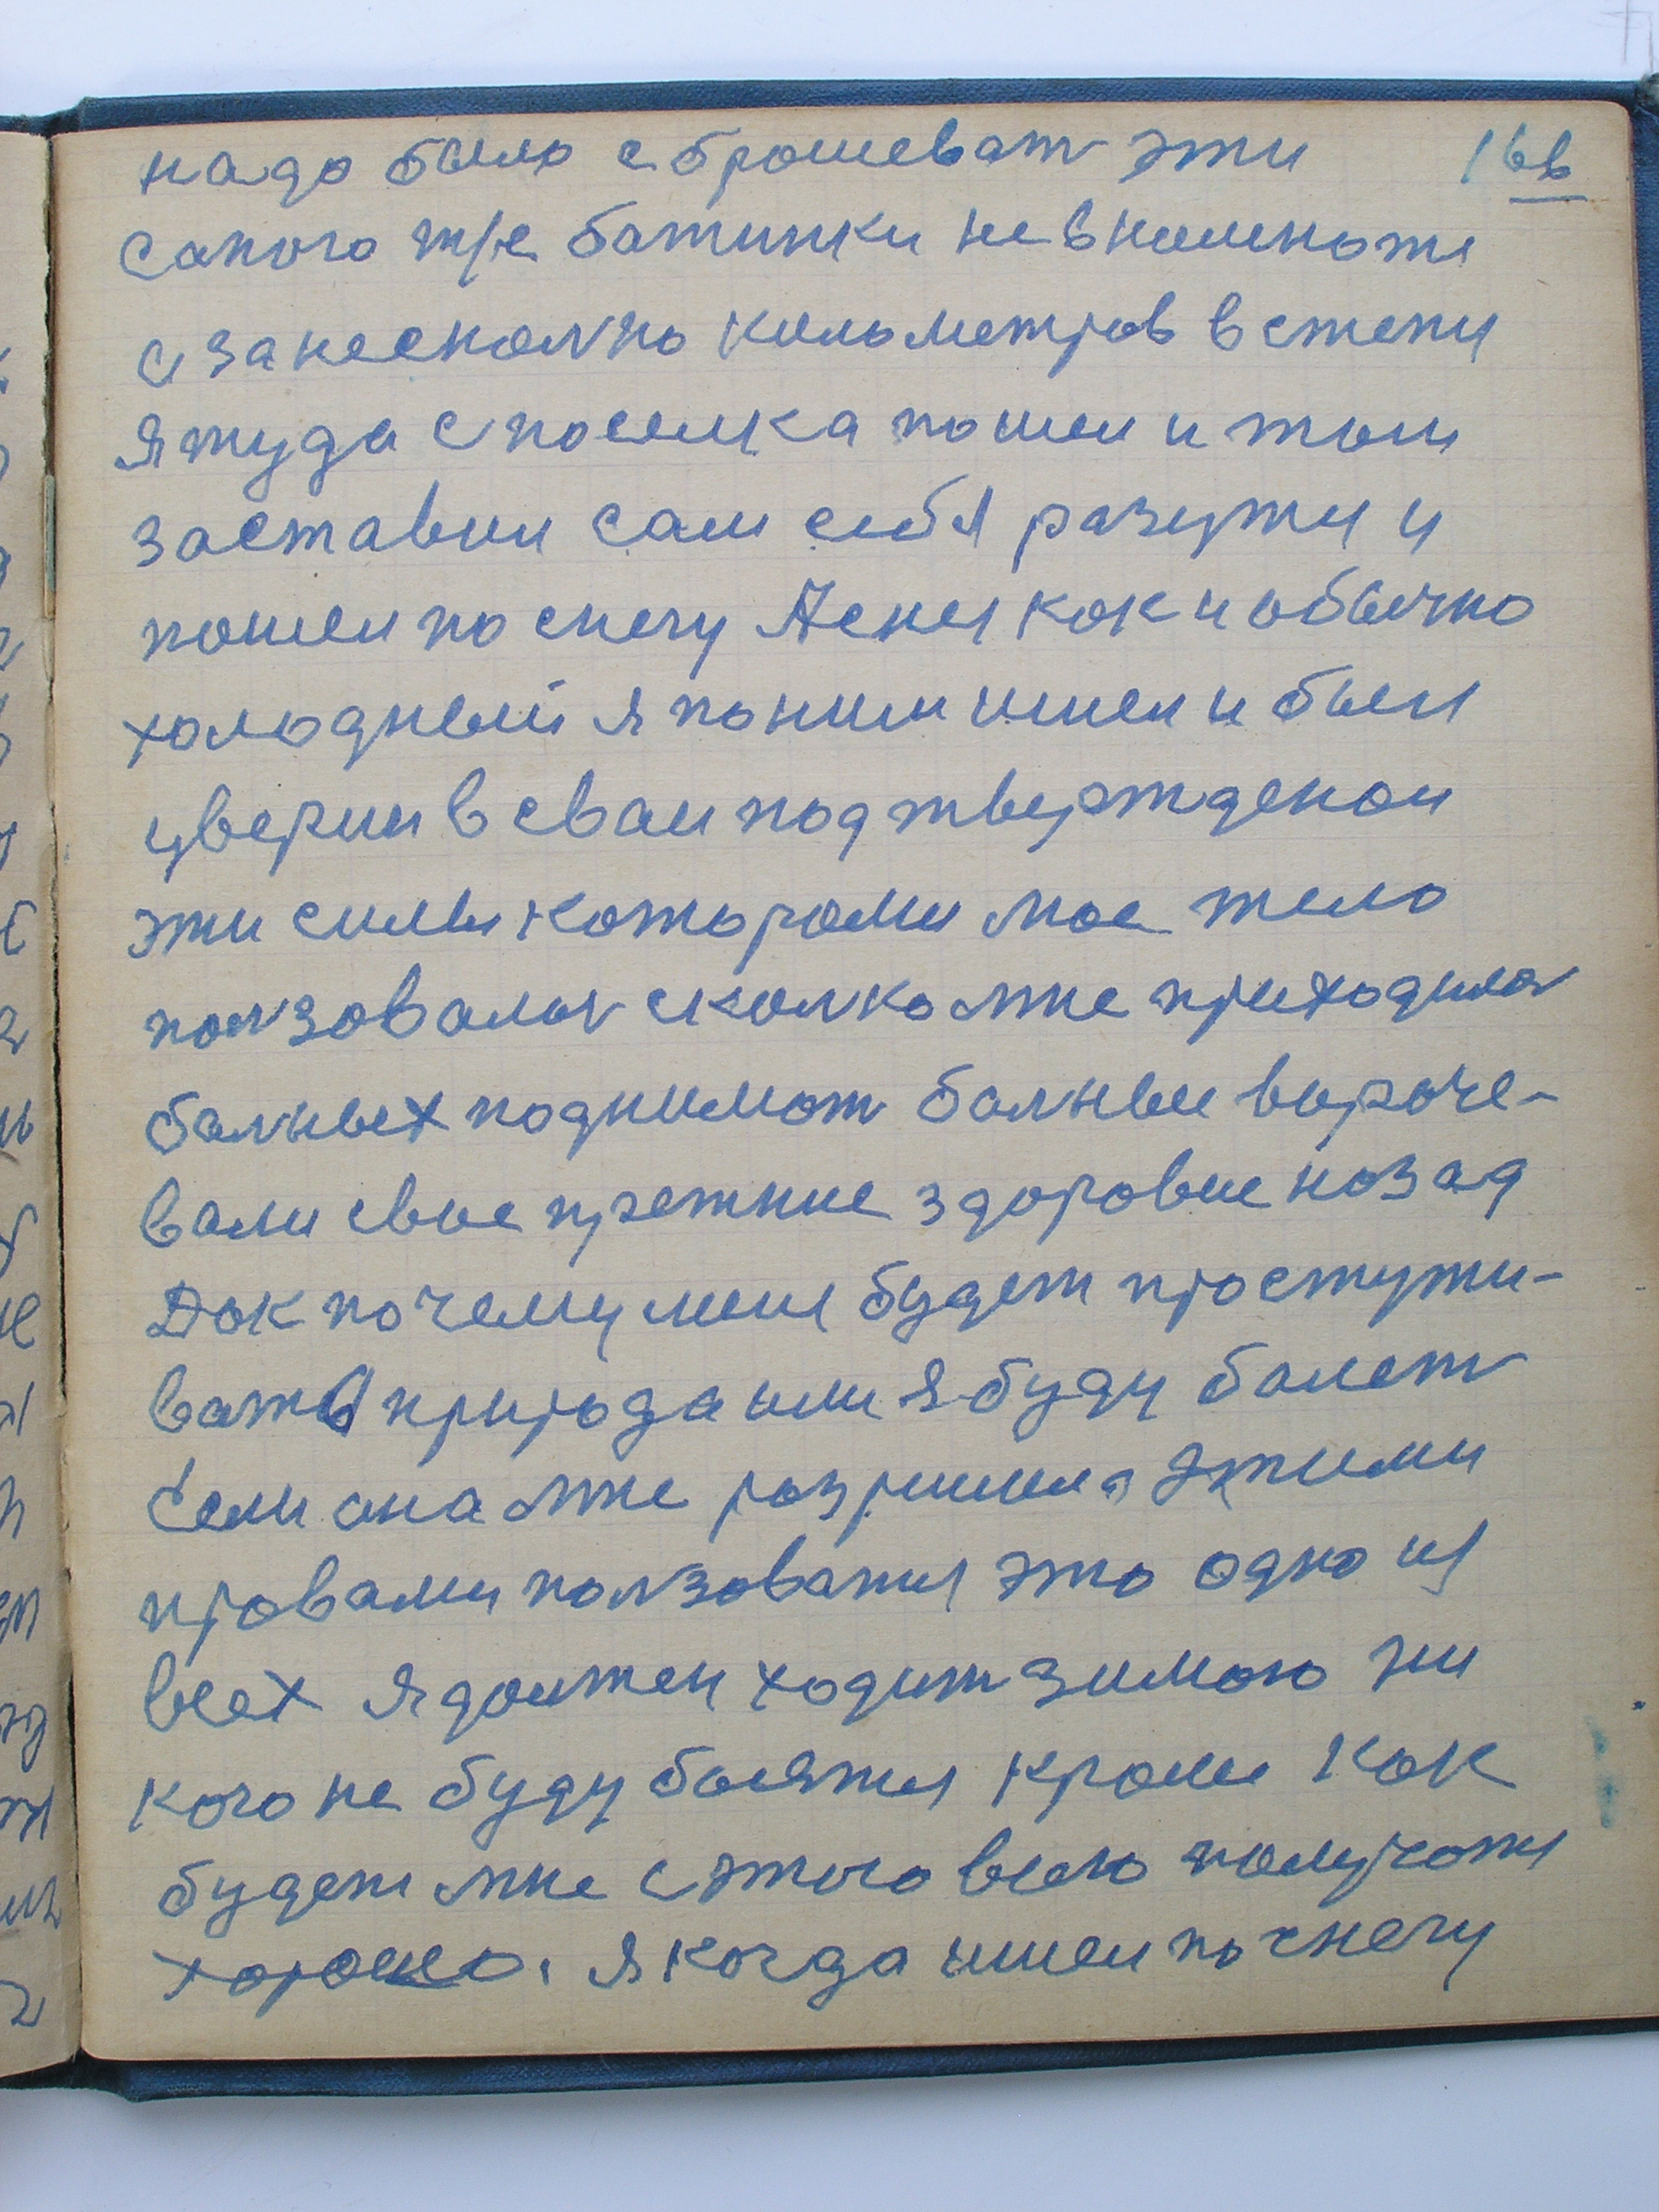 надо было сброшеват эти 166
сапоги т/е батинки не в комноти
а за несколко километров в степи
я туда с поселка пошел и там
заставил сам себя разутси и
пошел по снегу А снег как и обычно
холодный я по ним ишел и был
уверин в сваи подтвержденои
эти силы каторами мое тело
ползовалос сколко мне приходилос
балных поднимат балные вораче-
вали свое прежние здоровие назад
Дак почему меня будет простужи-
вать природа или я буду балет
Если она мне разришила этими
правами ползоватся это одно из
всех я должен ходит зимою ни
кого не буду боятся кроме как
будет мне с этого всего получатся
хорошо. я когда ишел по снегу